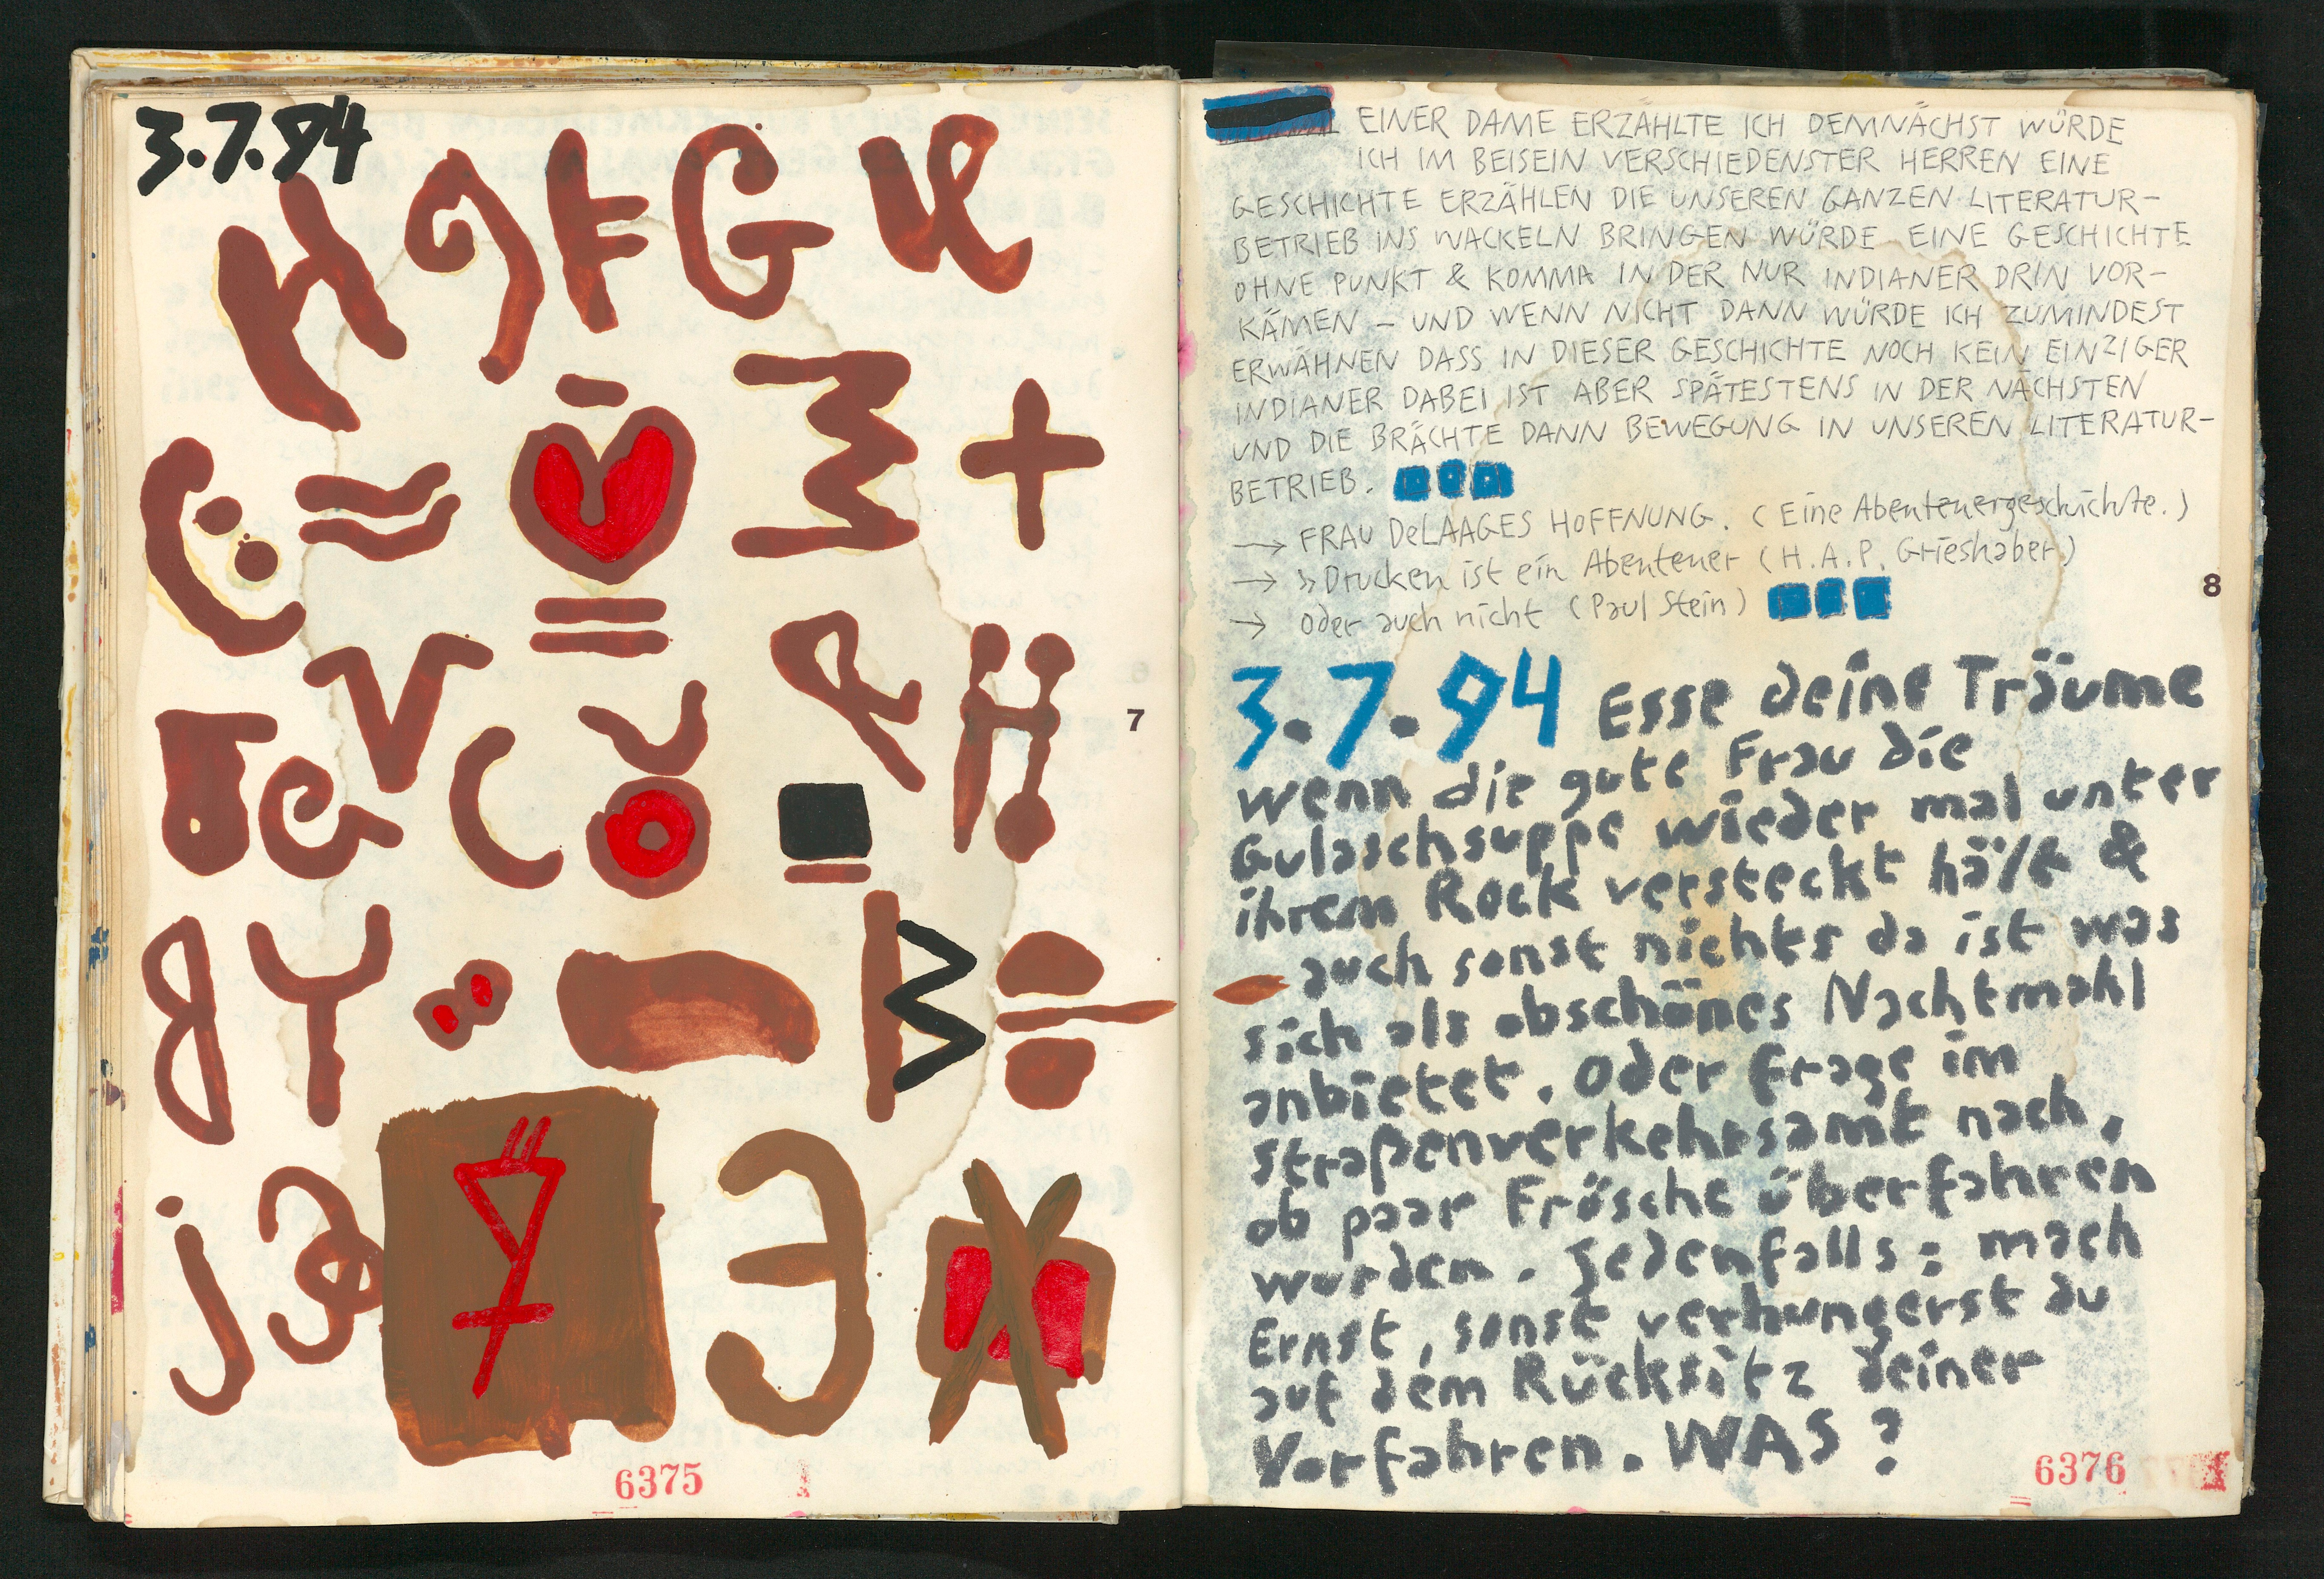 3.7.94
7
6375
EINER DAME ERZÄHLTE ICH DEMNÄCHST WÜRDE
ICH IM BEISEIN VERSCHIEDENSTER HERREN EINE
GESCHICHTE ERZÄHLEN DIE UNSEREN GANZEN LITERATUR-
BETRIEB INS WACKELN BRINGEN WÜRDE EINE GESCHICHTE
OHNE PUNKT & KOMMA IN DER NUR INDIANER DRIN VOR-
KÄMEN – UND WENN NICHT DANN WÜRDE ICH ZUMINDEST
ERWÄHNEN DASS IN DIESER GESCHICHTE NOCH KEIN EINZIGER
INDIANER DABEI IST ABER SPÄTESTENS IN DER NÄCHSTEN
UND DIE BRÄCHTE DANN BEWEGUNG IN UNSEREN LITERATUR-
BETRIEB.
→ FRAU DeLAAGES HOFFNUNG. (Eine Abenteuergeschichte.)
→ »Drucken ist ein Abenteuer (H.A.P. Grieshaber)
→ oder auch nicht (Paul Stein)
8
3.7.94 Esse deine Träume
wenn die gute Frau die
Gulaschsuppe wieder mal unter
ihrem Rock versteckt hält &
auch sonst nichts da ist was
sich als obschönes Nachtmahl
anbietet. Oder frage im
Straßenverkehrsamt nach,
ob paar Frösche überfahren
wurden. Jedenfalls: mach
Ernst, sonst verhungerst du
auf dem Rücksitz deiner
Vorfahren. WAS?
6376